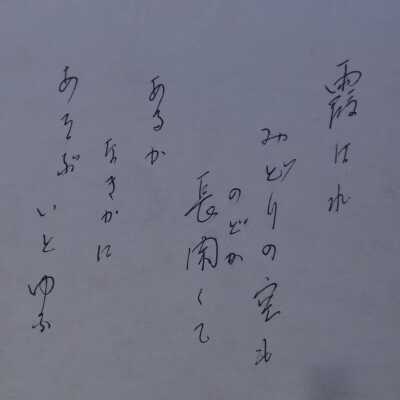 霞はれ
みどりの空も
のどか
長閑くて
あるか
なきかに
あそぶ
いとゆふ